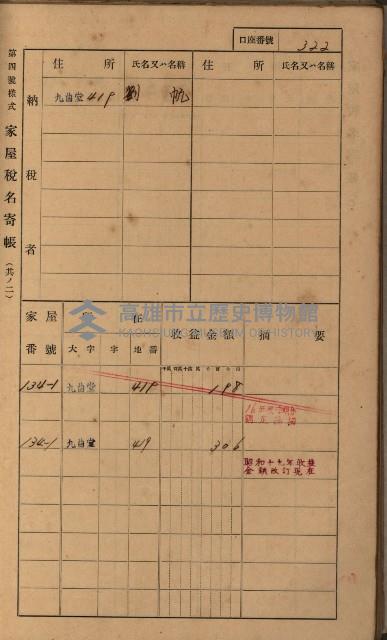 口座番號 322
第四號樣式 家屋稅名寄帳 (共ノ二)
納稅者
住所 氏名又ハ名稱 住所 氏名又ハ名稱
九曲堂 419 劉 帆
家屋番號 所在 收益金額 摘要
大字 字 地番
134-1 九曲堂 419 198
134-1 九曲堂 419 306
昭和十九年收益
金額改訂現在
高雄市立歷史博物館
KAOHSIUNG MUSEUM OF HISTORY